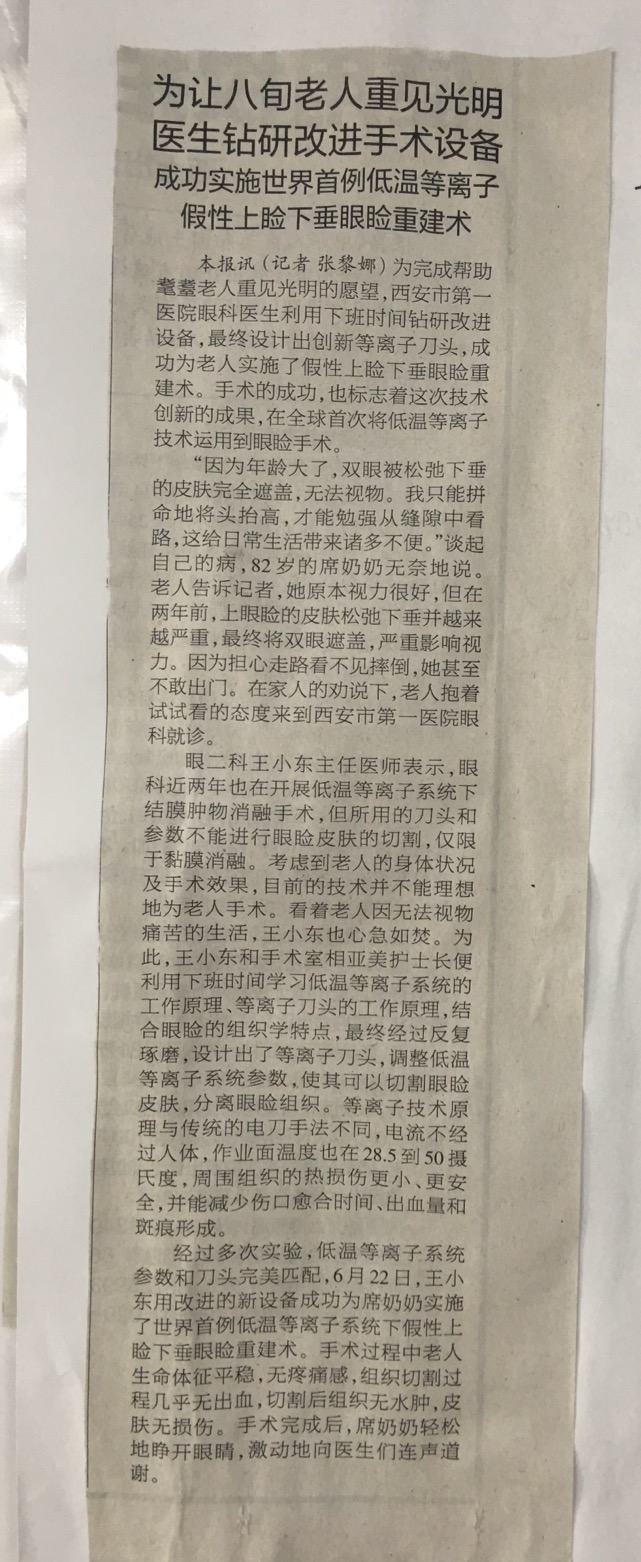 为让八旬老人重见光明
医生钻研改进手术设备
成功实施世界首例低温等离子
假性上睑下垂眼睑重建术
本报讯（记者 张黎娜）为完成帮助
耄耋老人重见光明的愿望，西安市第一
医院眼科医生利用下班时间钻研改进
设备，最终设计出创新等离子刀头，成
功为老人实施了假性上睑下垂眼睑重
建术。手术的成功，也标志着这次技术
创新的成果，在全球首次将低温等离子
技术运用到眼睑手术。
“因为年龄大了，双眼被松弛下垂
的皮肤完全遮盖，无法视物。我只能拼
命地将头抬高，才能勉强从缝隙中看
路，这给日常生活带来诸多不便。”谈起
自己的病，82岁的席奶奶无奈地说。
老人告诉记者，她原本视力很好，但在
两年前，上眼睑的皮肤松弛下垂并越来
越严重，最终将双眼遮盖，严重影响视
力。因为担心走路看不见摔倒，她甚至
不敢出门。在家人的劝说下，老人抱着
试试看的态度来到西安市第一医院眼
科就诊。
眼二科王小东主任医师表示，眼
科近两年也在开展低温等离子系统下
结膜肿物消融手术，但所用的刀头和
参数不能进行眼睑皮肤的切割，仅限
于黏膜消融。考虑到老人的身体状况
及手术效果，目前的技术并不能理想
地为老人手术。看着老人因无法视物
痛苦的生活，王小东也心急如焚。为
此，王小东和手术室相亚美护士长便
利用下班时间学习低温等离子系统的
工作原理、等离子刀头的工作原理，结
合眼睑的组织学特点，最终经过反复
琢磨，设计出了等离子刀头，调整低温
等离子系统参数，使其可以切割眼睑
皮肤，分离眼睑组织。等离子技术原
理与传统的电刀手法不同，电流不经
过人体，作业面温度也在28.5到50摄
氏度，周围组织的热损伤更小、更安
全，并能减少伤口愈合时间、出血量和
斑痕形成。
经过多次实验，低温等离子系统
参数和刀头完美匹配，6月22日，王小
东用改进的新设备成功为席奶奶实施
了世界首例低温等离子系统下假性上
睑下垂眼睑重建术。手术过程中老人
生命体征平稳，无疼痛感，组织切割过
程几乎无出血，切割后组织无水肿，皮
肤无损伤。手术完成后，席奶奶轻松
地睁开眼睛，激动地向医生们连声道
谢。